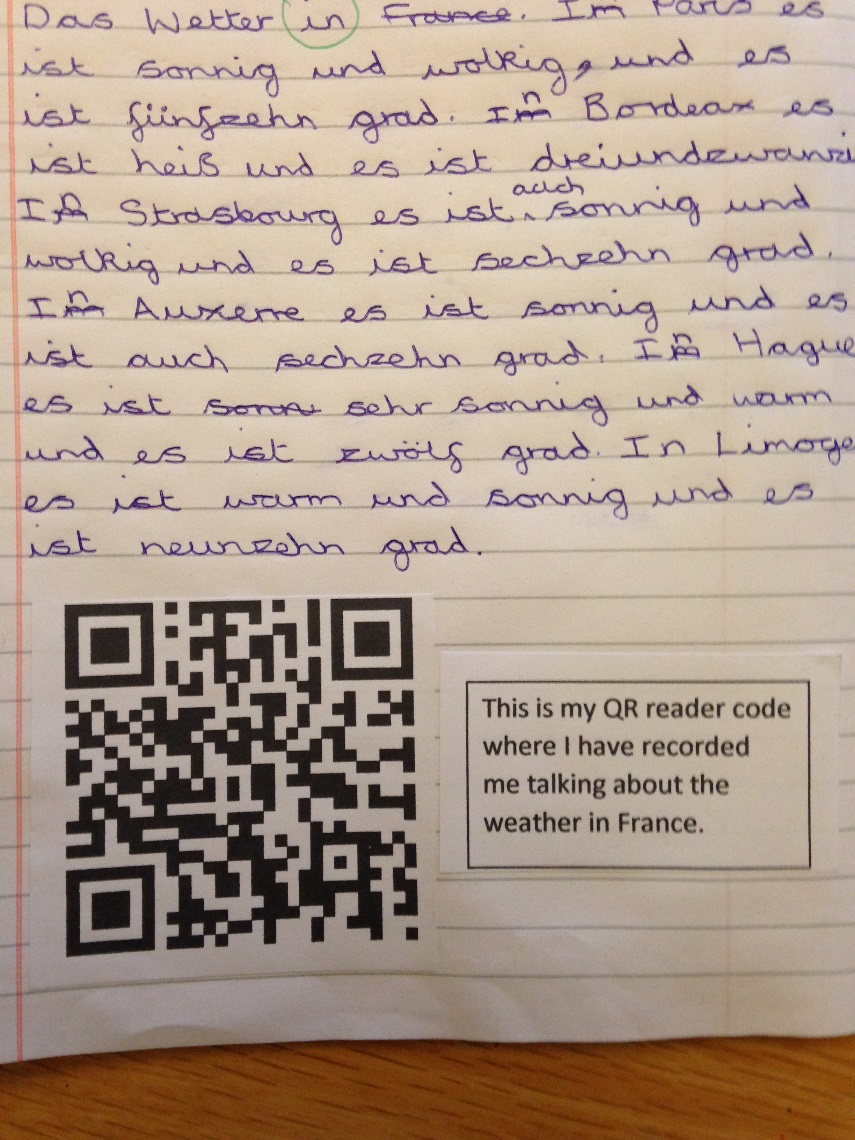 Das Wetter in France. Im Paris es
ist sonnig und wolkig, und es
ist fünfzehn grad. In Bordeax es
ist heiß und es ist dreiundzwanzi
In Strasbourg es ist auch sonnig und
wolkig und es ist sechzehn grad.
In Auxerre es ist sonnig und es
ist auch sechzehn grad. In Hague
es ist sonn sehr sonnig und warm
und es ist zwölf grad. In Limoge
es ist warm und sonnig und es
ist neunzehn grad.
This is my QR reader code
where I have recorded
me talking about the
weather in France.